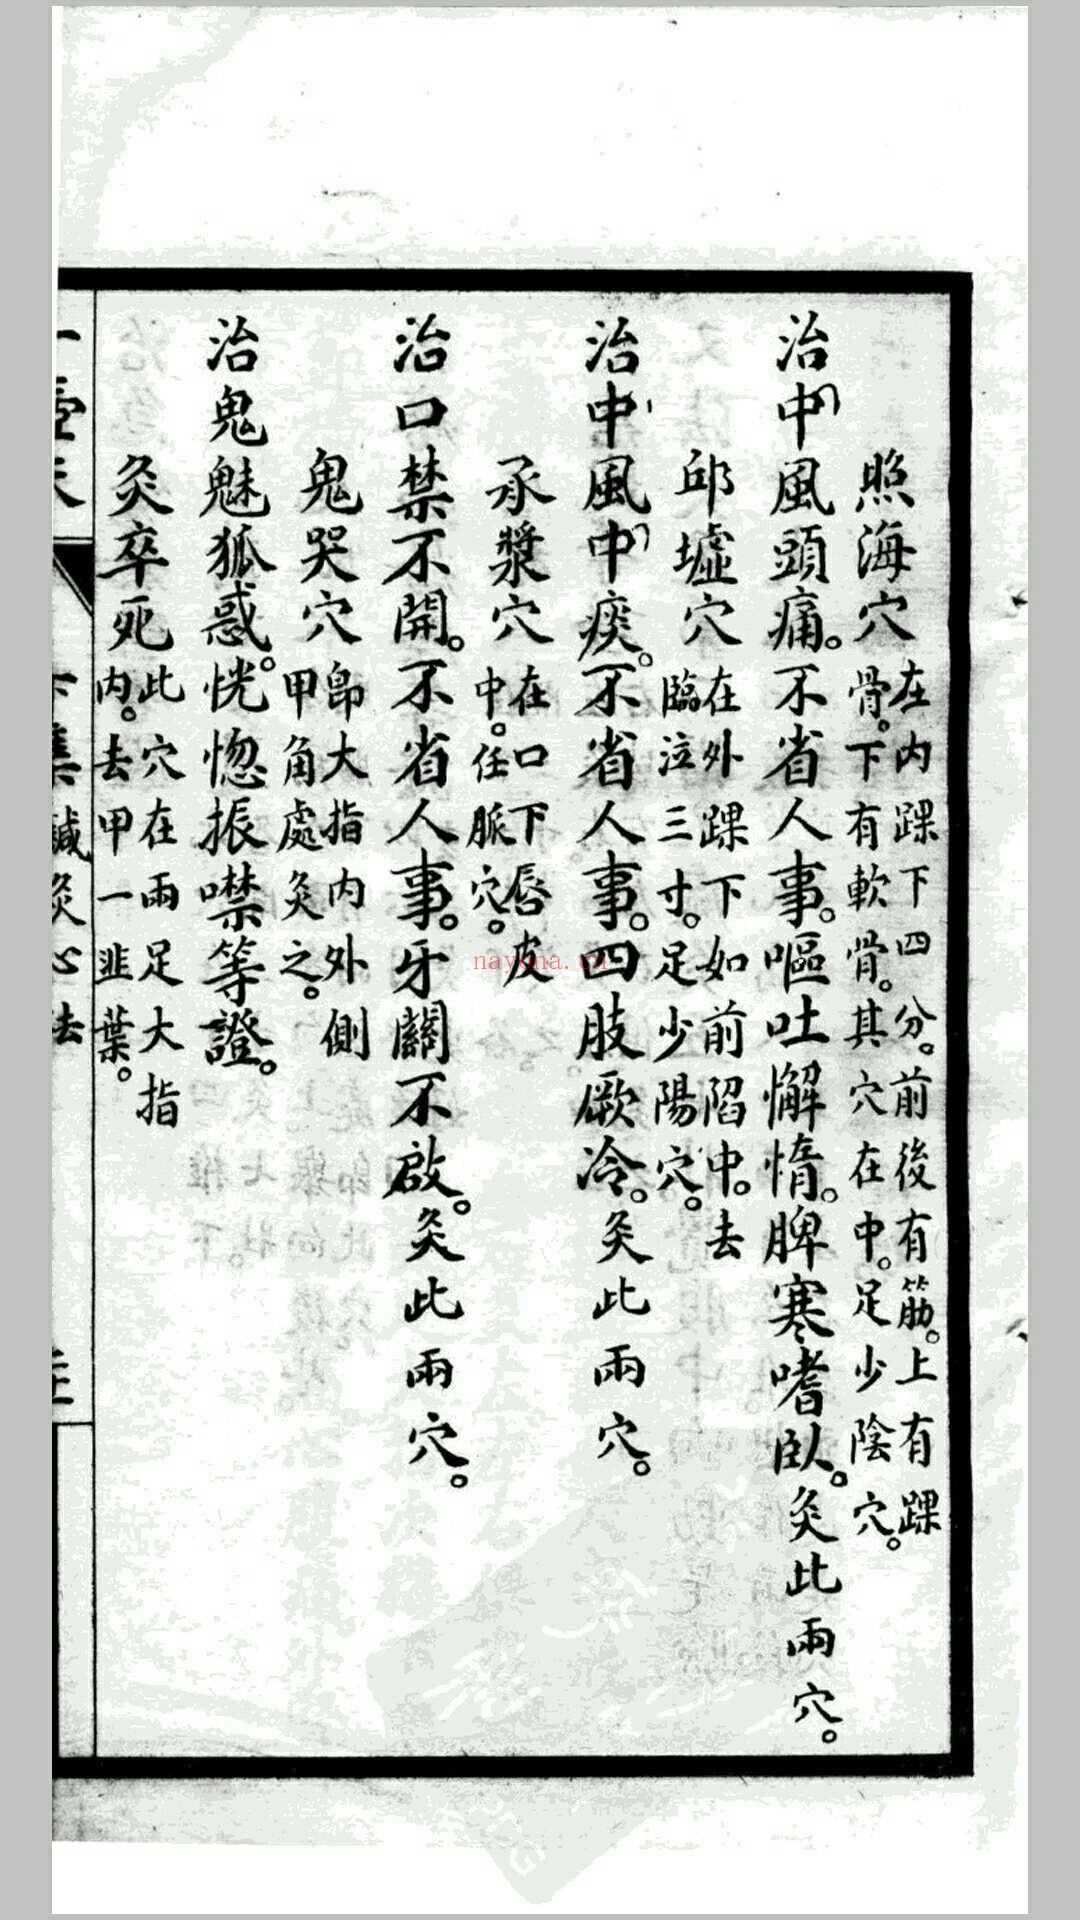 照海穴 在内踝下四分。前後有筋。上有踝
骨。下有軟骨。其穴在中。足少陰穴。
治中風頭痛。不省人事。嘔吐懈惰。脾寒嗜臥。灸此兩穴。
邱墟穴 在外踝下如前陷中。去
臨泣三寸。足少陽穴。
治中風中痰。不省人事。四肢厥冷。灸此兩穴。
承漿穴 在口下唇皮
中。任脈穴。
治口禁不開。不省人事。牙關不啟。灸此兩穴。
鬼哭穴 卽大指内外側
甲角處灸之。
治鬼魅狐惑。恍惚振噤等證。
灸卒死 此穴在兩足大指
内。去甲一韭葉。
一壺天
鍼灸心法
nayona.cn